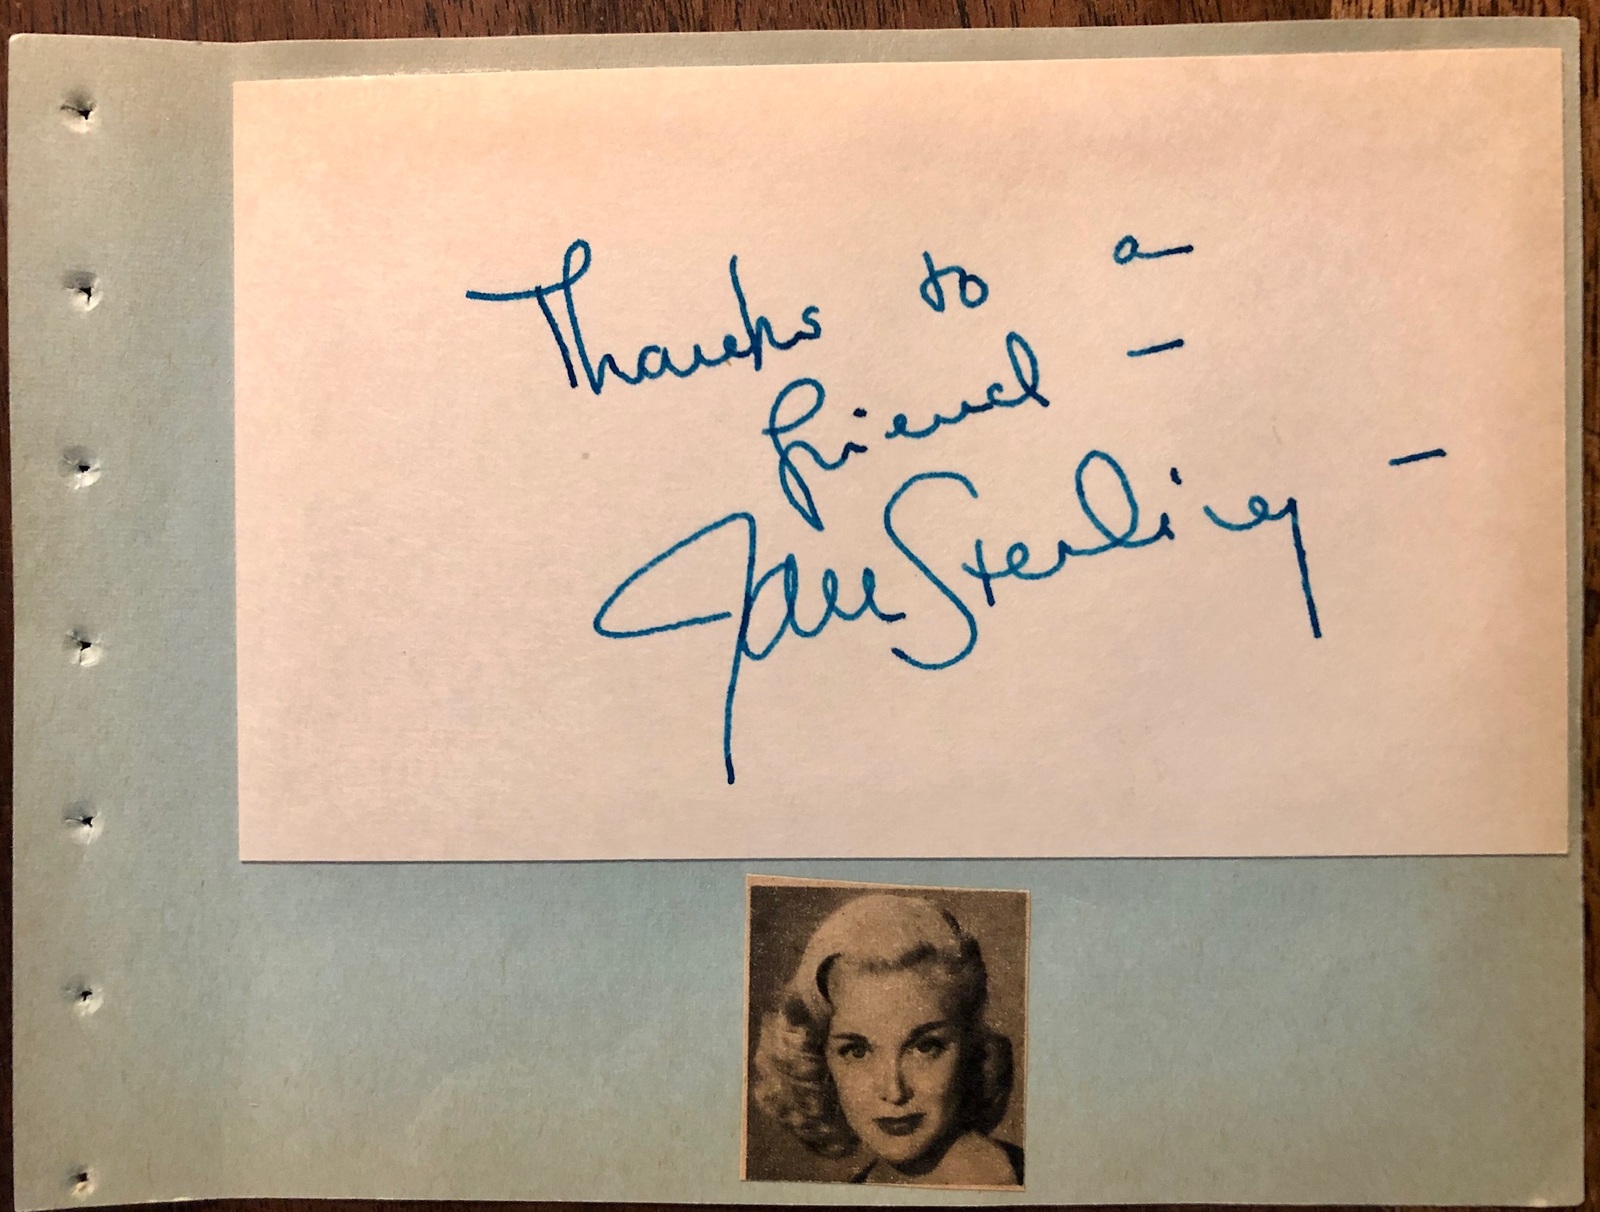 Thanks to a
friend —
Jan Sterling —